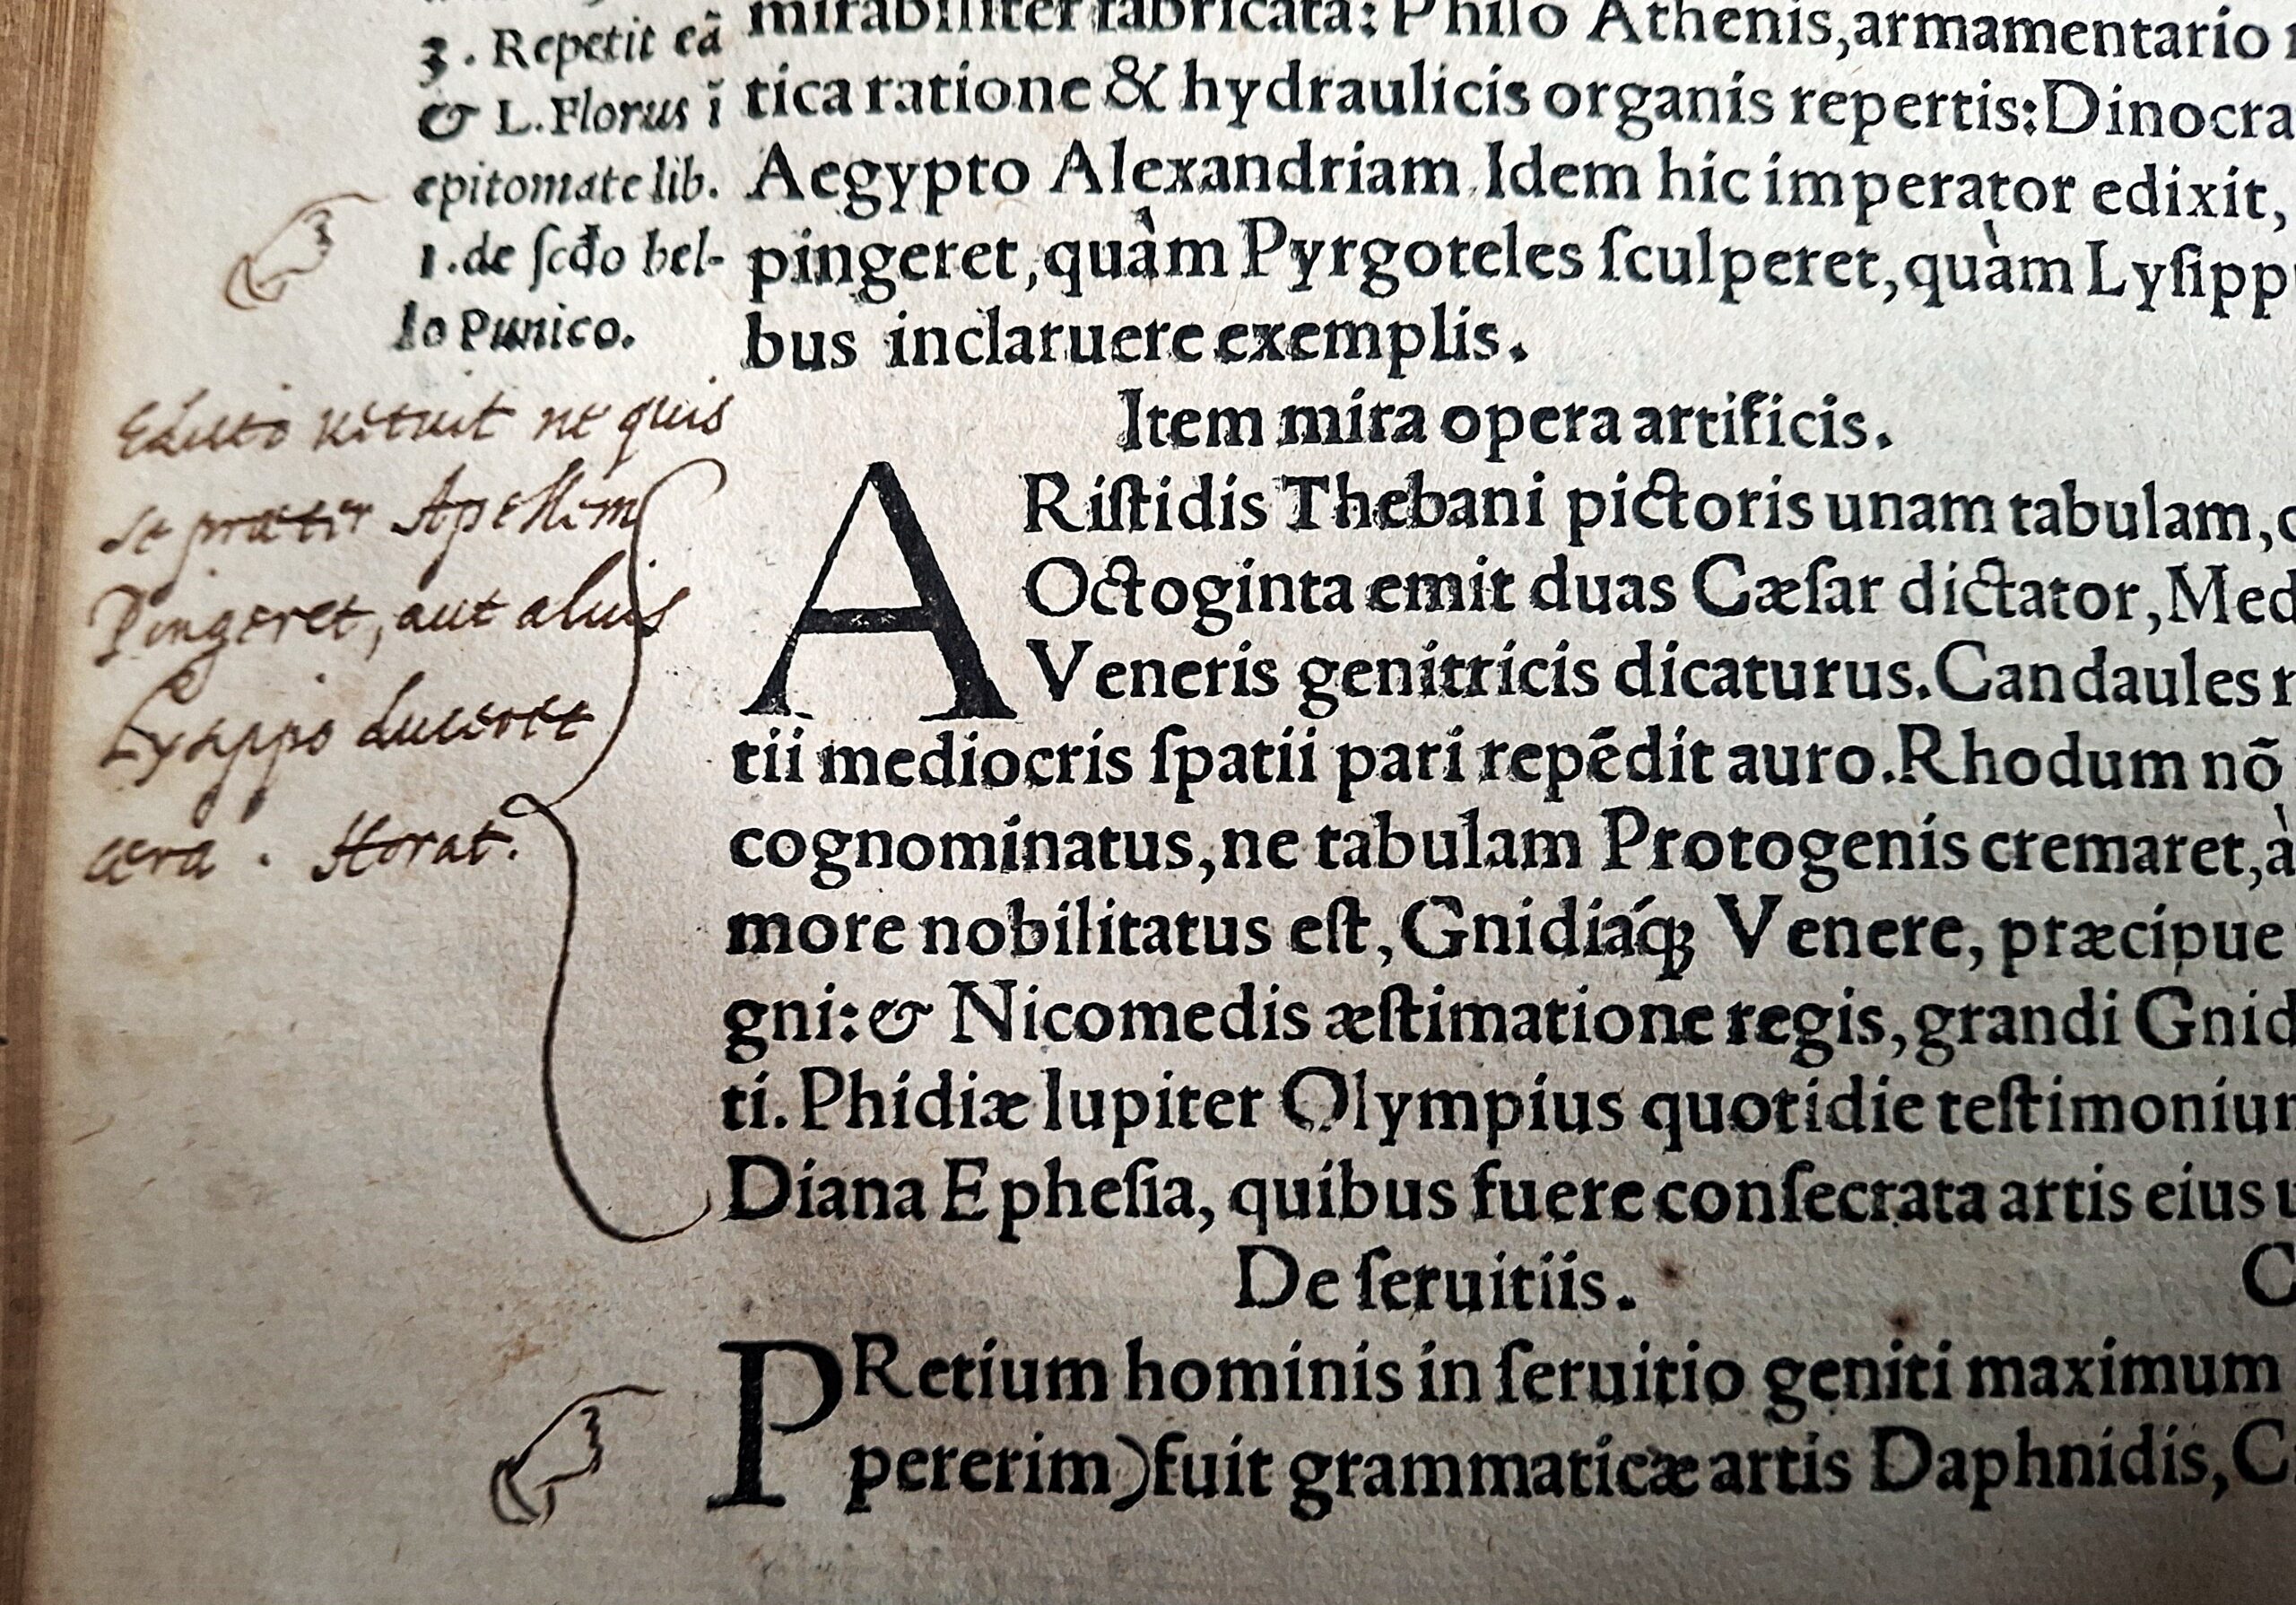 3. Repetit eã
& L. Florus ĩ
epitomate lib.
1. de ſcđo bel-
lo Punico.
Edicto vetuit ne quis
se præter Apellem
Pingeret, aut alius
Lysippo duceret
æra. Horat.
mirabiliter fabricata: Philo Athenis, armamentario
tica ratione & hydraulicis organis repertis: Dinocra
Aegypto Alexandriam. Idem hic imperator edixit,
pingeret, quàm Pyrgoteles ſculperet, quàm Lyſipp
bus inclaruere exemplis.
Item mira opera artificis.
ARiſtidis Thebani pictoris unam tabulam,
Octoginta emit duas Cæſar dictator, Med
Veneris genitricis dicaturus. Candaules r
tii mediocris ſpatii pari repēdit auro. Rhodum nō
cognominatus, ne tabulam Protogenis cremaret, à
more nobilitatus eſt, Gnidiáq; Venere, præcipue
gni: & Nicomedis æſtimatione regis, grandi Gnid
ti. Phidiæ Iupiter Olympius quotidie teſtimoniu
Diana Epheſia, quibus fuere conſecrata artis eius
De ſeruitiis. C
PRetium hominis in ſeruitio geniti maximum
pererim) fuit grammaticæ artis Daphnidis, C